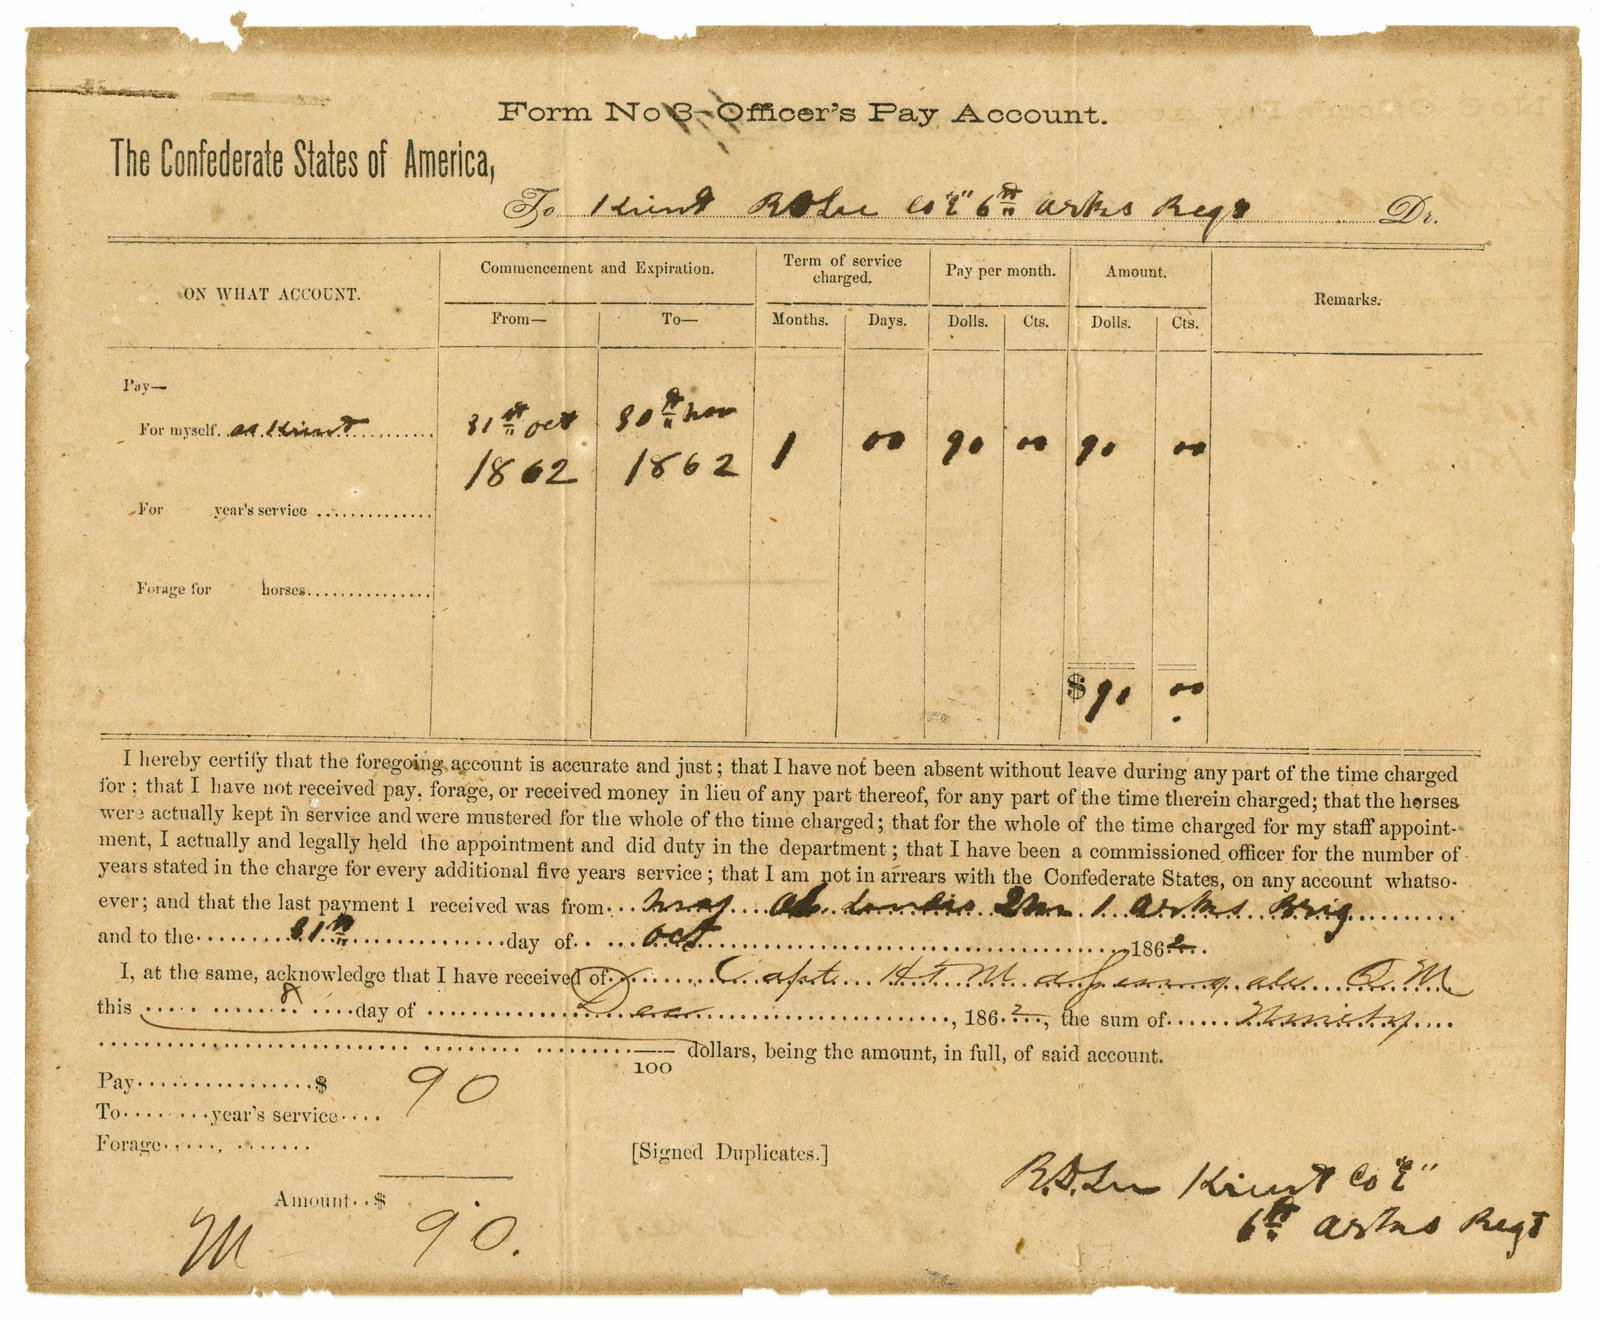 Form No 3—Officer's Pay Account.
The Confederate States of America,
To R D Lee Co "E" 6th Arks Regt Dr.
ON WHAT ACCOUNT. Commencement and Expiration. Term of service charged. Pay per month. Amount. Remarks.
From— To— Months. Days. Dolls. Cts. Dolls. Cts.
Pay—
For myself. as 31st Oct 1862 30th Nov 1862 1 00 90 00 90 00
For year's service
Forage for horses
$90 00
I hereby certify that the foregoing account is accurate and just; that I have not been absent without leave during any part of the time charged
for; that I have not received pay, forage, or received money in lieu of any part thereof, for any part of the time therein charged; that the horses
were actually kept in service and were mustered for the whole of the time charged; that for the whole of the time charged for my staff appoint-
ment, I actually and legally held the appointment and did duty in the department; that I have been a commissioned officer for the number of
years stated in the charge for every additional five years service; that I am not in arrears with the Confederate States, on any account whatso-
ever; and that the last payment I received was from 1 Arks Brig
and to the 31st day of Oct 1862
I, at the same, acknowledge that I have received of Capt. Q M
this 8 day of Dec, 1862, the sum of Ninety
/100 dollars, being the amount, in full, of said account.
Pay $ 90
To year's service
Forage
[Signed Duplicates.]
Amount $ 90.
R.D. Lee Co "E"
6th Arks Regt